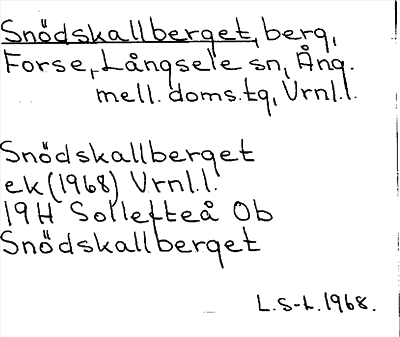 Snödskallberget, berg,
Forse, Långsele sn, Ång.
mell. doms.tg, Vrnl.l.
Snödskallberget
ek (1968) Vrnl.l.
19H Sollefteå Ob
Snödskallberget
L.S-L. 1968.